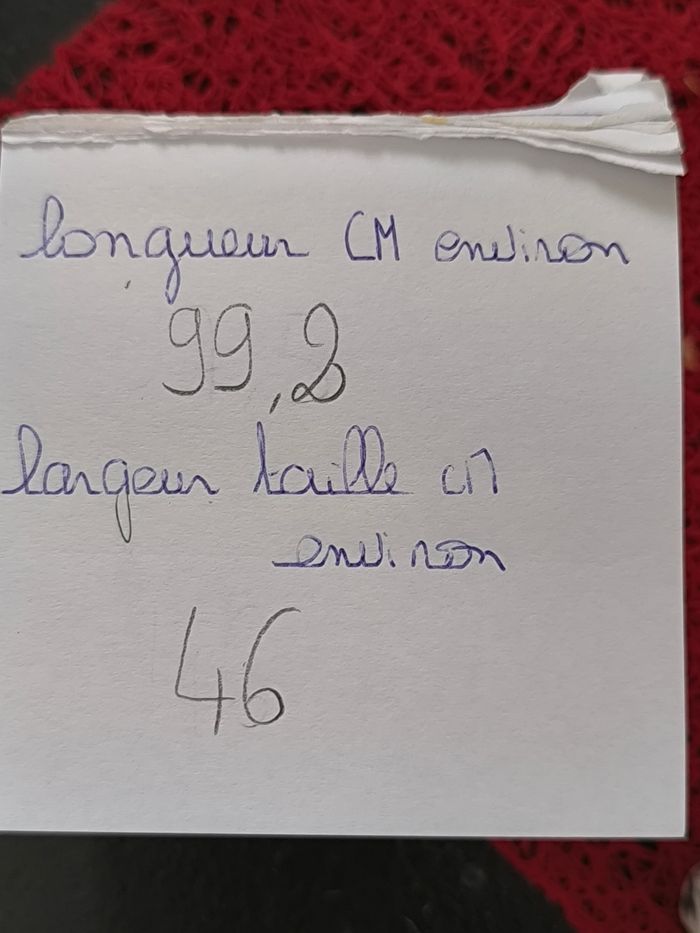 longueur CM environ
99,2
largeur taille CM
environ
46